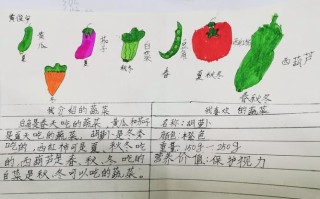 黄瓜
夏
茄子
夏
白菜
秋冬
豆角
春
西红柿
夏秋冬
西葫芦
春秋冬
冬
我介绍的蔬菜
豆角是春天吃的蔬菜,黄瓜和茄子
是夏天吃的蔬菜,胡萝卜是冬季
吃的,西红柿可是夏、秋冬吃
的,西葫芦是春、秋、冬吃的
白菜是秋、冬可以吃的蔬菜。
我喜欢的蔬菜
名称:胡萝卜
颜色:橙色
重量:150g—250g
营养价值:保护视力